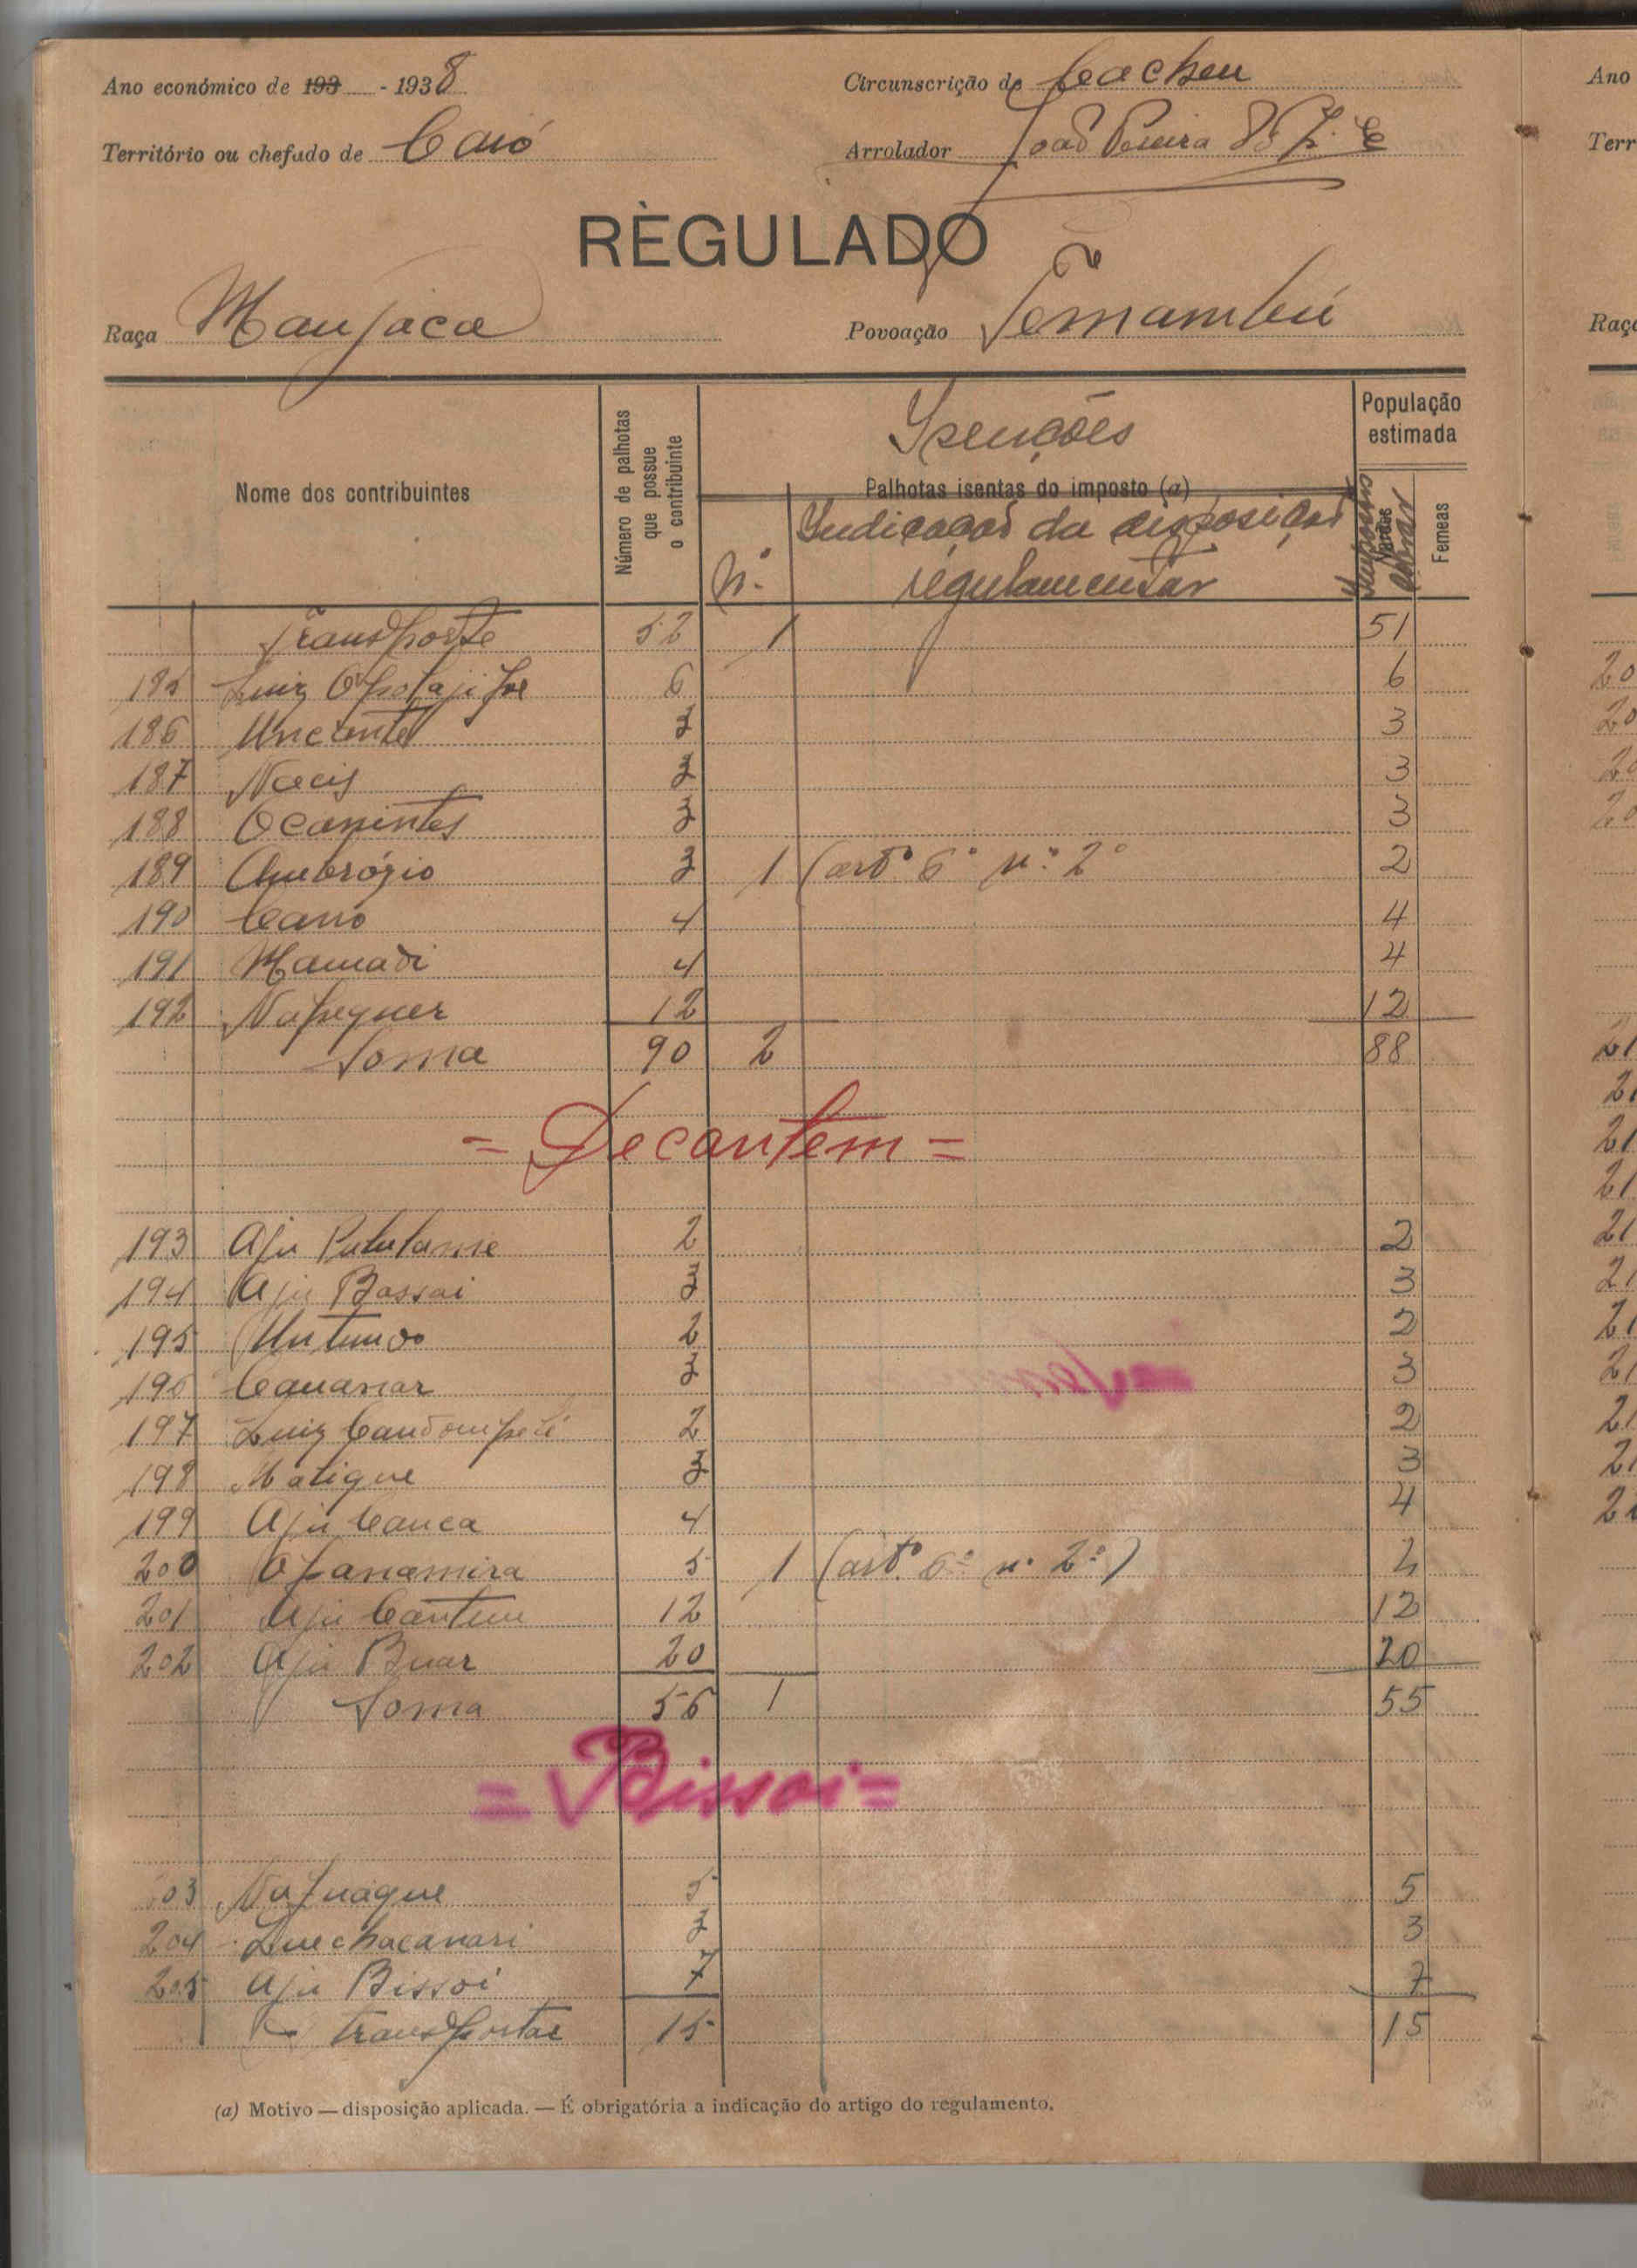 Ano económico de 193 - 1938
Circunscrição de Cacheu
Território ou chefado de Caió
Arrolador João Pereira
RÈGULADO
Raça Manjaca
Povoação
Nome dos contribuintes
Número de palhotas que possue o contribuinte
Isenções
Palhotas isentas do imposto (a)
N.º
Indicação da disposição
regulamentar
População estimada
Varões
Femeas
Transporte 52 1 51
185 Luiz 6 6
186 3 3
187 Nacis 3 3
188 Ocanintes 3 3
189 Ambrózio 3 1 (artº 6º nº 2º 2
190 Caió 4 4
191 Mamadi 4 4
192 Napequer 12 12
Soma 90 2 88
= Decantem =
193 Aju 2 2
194 Aju Bassai 3 3
195 Untundo 2 2
196 Cauanar 3 3
197 Luiz 2 2
198 Matique 3 3
199 Aju Canca 4 4
200 5 1 (artº 6º nº 2º) 4
201 Aju Cantum 12 12
202 Aju Buar 20 20
Soma 56 1 55
= Bissoi =
203 5 5
204 3 3
205 Aju Bissoi 7 7
Transportar 15 15
(a) Motivo — disposição aplicada. — É obrigatória a indicação do artigo do regulamento.